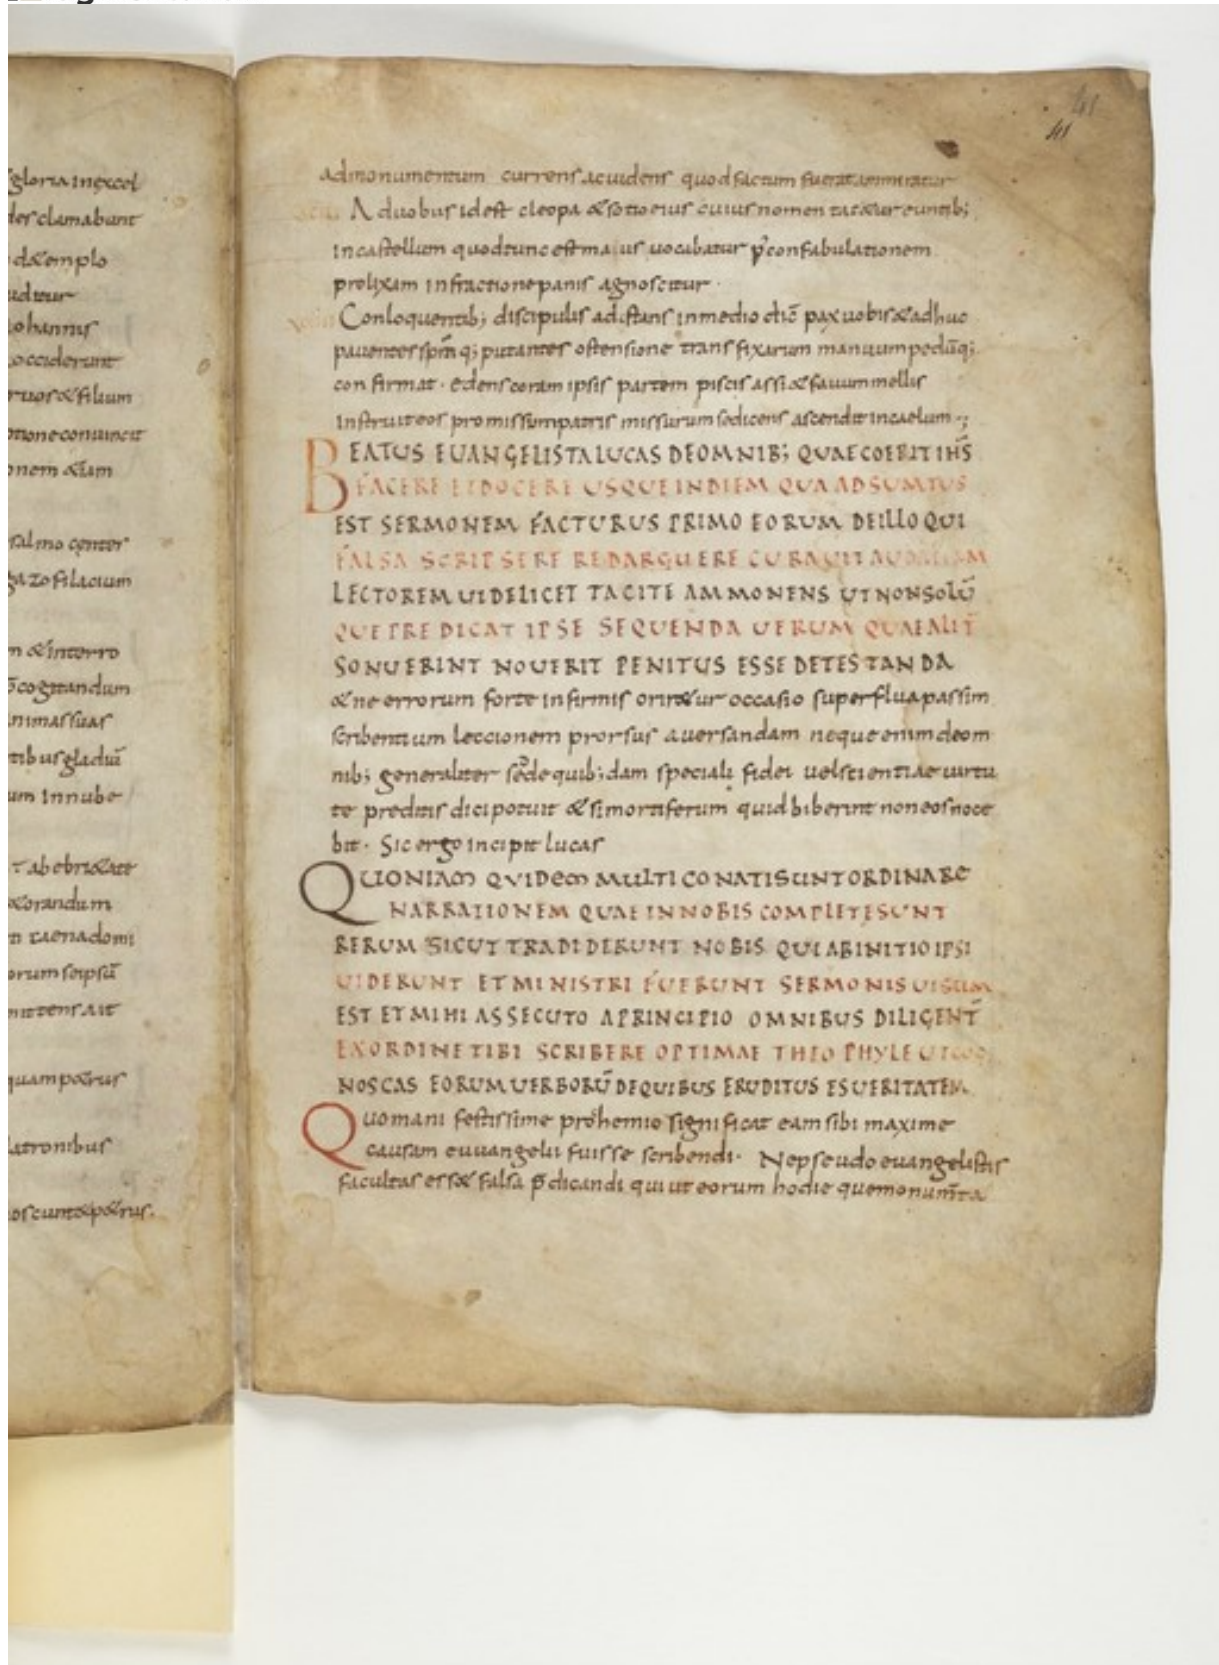 gloria in excel
der clamabunt
ohannis
occiderunt
ruos & filium
tione conuincit
onem &iam
psalmo center
gazofilacium
m & interro
cogitandum
nimas suas
tibus gladiū
um In nube
ab ebri&ate
&orandum
orum seipsū
mittens ait
quam p&rus
latronibus
oscunt& p&rus.
41
41
ad monumentum currens ac uidens quod factum fuerat ammiratur
A duobus id est cleopa & sotio eius cuius nomen tac&ur euntib;
in castellum quod tunc est maius uocabatur p̄ confabulationem
prolixam in fractione panis agnoscitur.
Conloquentib; discipulis adstans in medio dicit pax uobis & adhuc
pauentes spm̄ q; putantes ostensione transfixarum manuum pedūq;
confirmat. edens coram ipsis partem piscis assi & fauum mellis
Instruit eos promissum patris missurum se dicens ascendit in caelum
BEATUS EUANGELISTA LUCAS DE OMNIB; QUAE COEPIT IHS
FACERE ET DOCERE USQUE IN DIEM QUA ADSUMTUS
EST SERMONEM FACTURUS PRIMO EORUM DE ILLO QUI
FALSA SCRIPSERE REDARGUERE CURAUIT
LECTOREM UIDELICET TACITE AMMONENS UT NON SOLŪ
QUE PREDICAT IPSE SEQUENDA UERUM QUAE ALIT̄
SONUERINT NOUERIT PENITUS ESSE DETESTANDA
& ne errorum forte infirmis orir&ur occasio superflua passim
scribentium leccionem prorsus auersandam neque enim de om
nib; generaliter sed de quib;dam speciali fidei uel scientiae uirtu
te preditis dici potuit & si mortiferum quid biberint non eos noce
bit. Sic ergo incipit lucas
QUONIAM QUIDEM MULTI CONATI SUNT ORDINARE
NARRATIONEM QUAE IN NOBIS COMPLETE SUNT
RERUM SICUT TRADIDERUNT NOBIS QUI AB INITIO IPSI
UIDERUNT ET MINISTRI FUERUNT SERMONIS UISUM
EST ET MIHI ASSECUTO A PRINCIPIO OMNIBUS DILIGENT̄
EX ORDINE TIBI SCRIBERE OPTIMAE THEOPHYLE
NOSCAS EORUM UERBORŪ DE QUIBUS ERUDITUS ES UERITATEM
Quo manifestissime prohemio significat eam sibi maxime
causam euuangelii fuisse scribendi. Ne pseudo euangelistis
facultas ess& falsa p̄dicandi qui ut eorum hodie que monum̄ta